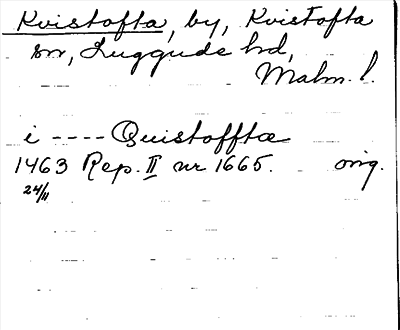 Kvistofta, by, Kvistofta
sn, Luggude hd,
Malm. l.
i ---- Quistofftæ
1463 Rep. II nr 1665. orig.
24/11